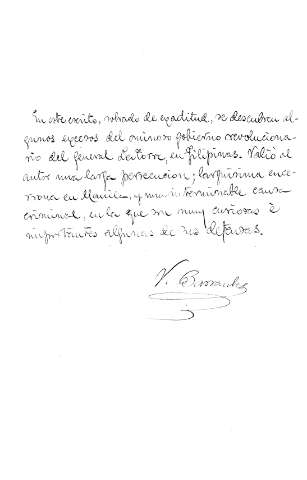 En este escrito, sobrado de exactitud, se descubren al-
gunos excesos del ominoso gobierno revoluciona-
rio del general Latorre, en Filipinas. Valió al
autor una larga persecucion; larguísima ence-
rrona en Manila, y una interminable causa
criminal, en la que son muy curiosas é
importantes algunas de sus defensas.
V. Barrantes